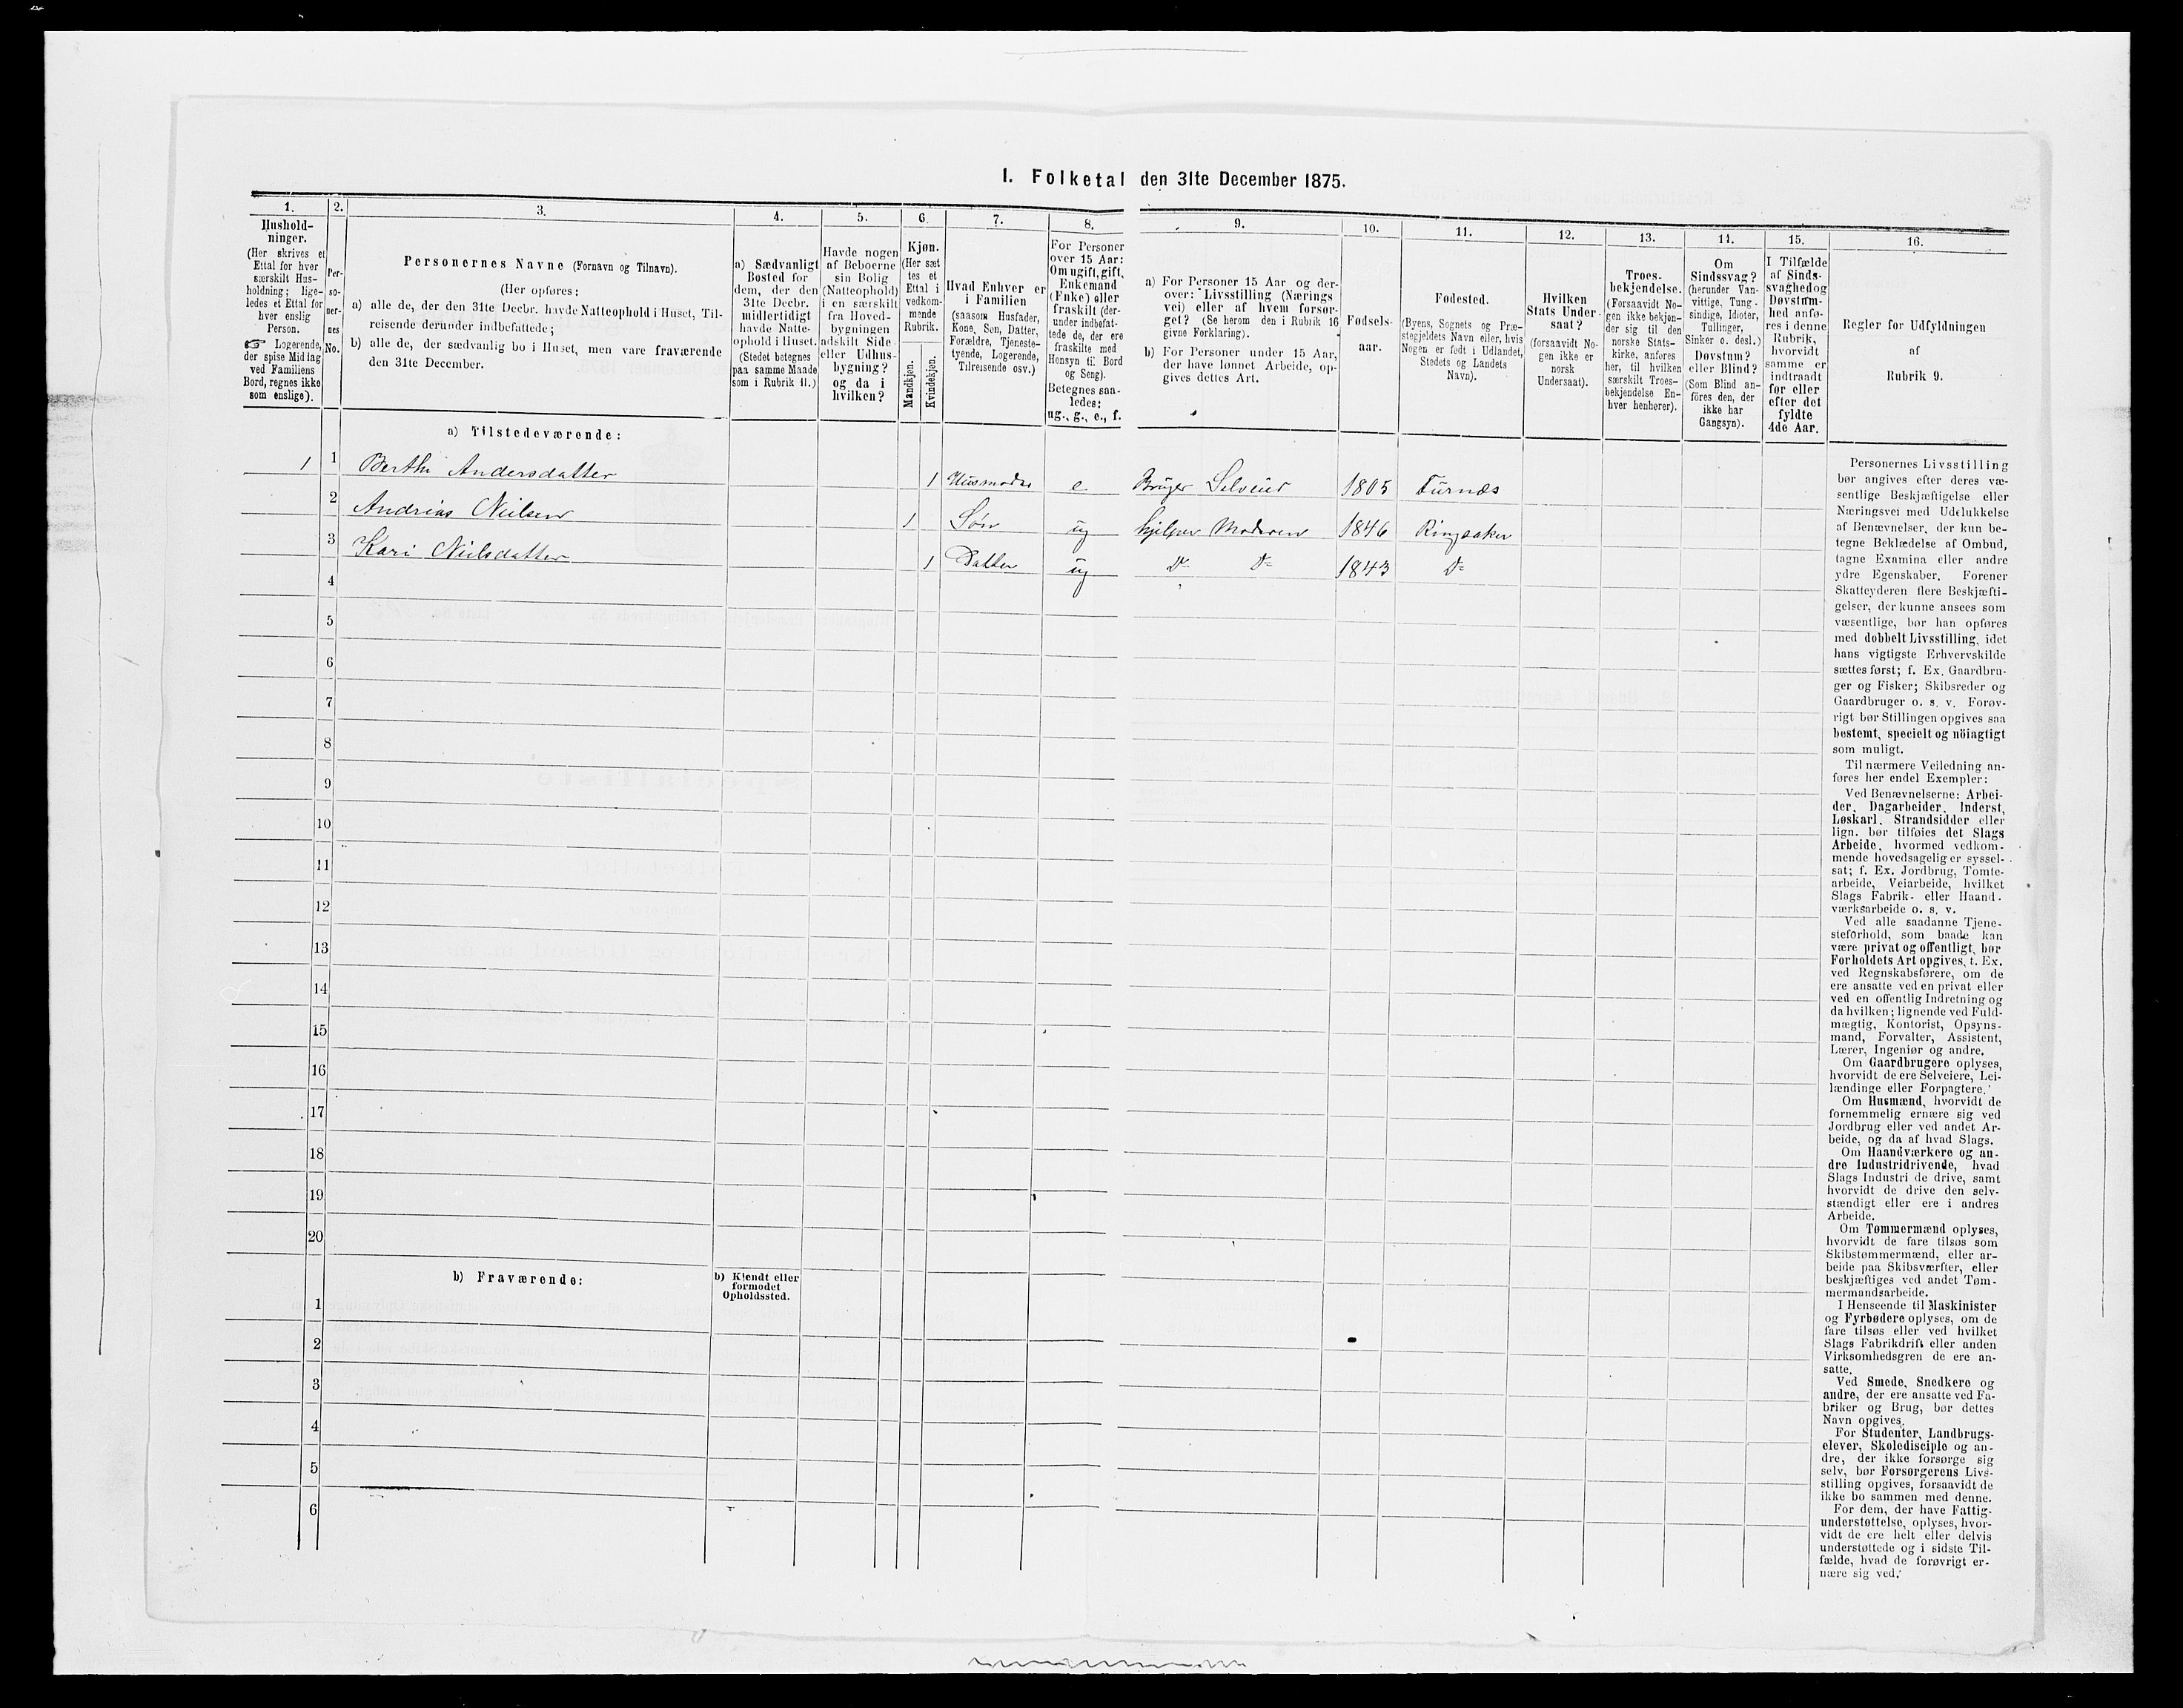 I. Folketal den 31te December 1875.
1.
Hushold-
ninger.
(Her skrives et
Ettal for hver
særskilt Hus-
holdning; lige-
ledes et Ettal for
hver enslig
Person.
☞ Logerende,
der spise Middag
ved Familiens
Bord, regnes ikke
som enslige).
2.
Per-
so-
ner-
nes
No.
3.
Personernes Navne (Fornavn og Tilnavn).
(Her opføres:
a) alle de, der den 31te Decbr. havde Natteophold i Huset, Til-
reisende derunder indbefattede;
b) alle de, der sædvanlig bo i Huset, men vare fraværende
den 31te December.
4.
a) Sædvanligt
Bosted for
dem, der den
31te Decbr.
midlertidigt
havde Natte-
ophold i Huset.
(Stedet betegnes
paa samme Maade
som i Rubrik 11.)
5.
Havde nogen
af Beboerne
sin Bolig
(Natteophold)
i en særskilt
fra Hoved-
bygningen
adskilt Side-
eller Udhus-
bygning?
og da i
hvilken?
6.
Kjøn.
(Her sæt
tes et
Ettal i
vedkom-
mende
Rubrik.
Mandkjøn.
Kvindekjøn.
7.
Hvad Enhver er
i Familien
(saasom Husfader,
Kone, Søn, Datter,
Forældre, Tjeneste-
tyende, Logerende,
Tilreisende osv.)
8.
For Personer
over 15 Aar:
Om ugift, gift,
Enkemand
(Enke) eller
fraskilt (der-
under indbefat-
tede de, der ere
fraskilte med
Hensyn til Bord
og Seng).
Betegnes saa-
ledes:
ug., g., e., f.
9.
a) For Personer 15 Aar og der-
over: Livsstilling (Nærings
vei) eller af hvem forsør-
get? (Se herom den i Rubrik 16
givne Forklaring).
b) For Personer under 15 Aar,
der have lønnet Arbeide, op-
gives dettes Art.
10.
Fødsels-
aar.
11.
Fødested.
(Byens, Sognets og Præ-
stegjeldets Navn eller, hvis
Nogen er født i Udlandet,
Stedets og Landets
Navn).
12.
Hvilken
Stats Under-
saat?
(forsaavidt No-
gen ikke er
norsk
Undersaat).
13.
Troes-
bekjendelse.
(Forsaavidt No-
gen ikke bekjen-
der sig til den
norske Stats-
kirke, anføres
her, til hvilken
særskilt Troes-
bekjendelse En-
hver henhører).
14.
Om
Sindssvag?
(herunder Van-
vittige, Tung-
sindige, Idioter,
Tullinger,
Sinker o. desl.)
Døvstum?
eller Blind?
(Som Blind an-
föres den, der
ikke har
Gangsyn).
15.
I Tilfælde
af Sinds-
svaghed og
Døvstum-
hed anfø-
res i denne
Rubrik,
hvorvidt
samme er
indtraadt
før eller
efter det
fyldte
4de Aar.
16.
Regler for Udfyldningen
af
Rubrik 9.
a) Tilstedeværende:
1 1 Berthe Andersdatter 1 Husmoder e Bruger Selveier 1805 Furnæs
2 Andrias Nielsen 1 Søn ug hjelper Moderen 1846 Ringsaker
3 Kari Nielsdatter 1 Datter ug Do Do 1843 Do
4
5
6
7
8
9
10
11
12
13
14
15
16
17
18
19
20
b) Fraværende:
b) Kjendt eller
formodet
Opholdssted.
1
2
3
4
5
6
Personernes Livsstilling
bør angives efter deres væ-
sentlige Beskjæftigelse eller
Næringsvei med Udelukkelse
af Benævnelser, der kun be-
tegne Beklædelse af Ombud,
tagne Examina eller andre
ydre Egenskaber. Forener
Skatteyderen flere Beskjæfti-
gelser, der kunne ansees som
væsentlige, bør han opføres
med dobbelt Livsstilling, idet
hans vigtigste Erhvervskilde
sættes først; f. Ex. Gaardbru-
ger og Fisker; Skibsreder og
Gaardbruger o. s. v. Forøv-
rigt bør Stillingen opgives saa
bestemt, specielt og nöiagtigt
som muligt.
Til nærmere Veiledning an-
føres her endel Exempler:
Ved Benævnelserne: Arbei-
der, Dagarbeider, Inderst,
Løskarl, Strandsidder eller
lign. bør tilføies det Slags
Arbeide, hvormed vedkom-
mende hovedsagelig er syssel-
sat; f. Ex. Jordbrug, Tomte-
arbeide, Veiarbeide, hvilket
Slags Fabrik- eller Haand-
værksarbeide o. s. v.
Ved alle saadanne Tjene-
steforhold, som baade kan
være privat og offentligt, bør
Forholdets Art opgives, t. Ex.
ved Regnskabsførere, om de
ere ansatte ved en privat eller
ved en offentlig Indretning og
da hvilken; lignende ved Fuld-
mægtig, Kontorist, Opsyns-
mand, Forvalter, Assistent,
Lærer, Ingeniør og andre.
Om Gaardbrugere oplyses,
hvorvidt de ere Selveiere, Lei-
lændinge eller Forpagtere.
Om Husmænd, hvorvidt de
fornemmelig ernære sig ved
Jordbrug eller ved andet Ar-
beide, og da af hvad Slags.
Om Haandværkere og an-
dre Industridrivende, hvad
Slags Industri de drive, samt
hvorvidt de drive den selv-
stændigt eller ere i andres
Arbeide.
Om Tømmermænd oplyses,
hvorvidt de fare tilsøs som
Skibstømmermænd, eller ar-
beide paa Skibsværfter, eller
beskjæftiges ved andet Tøm-
mermandsarbeide.
I Henseende til Maskinister
og Fyrbødere oplyses, om de
fare tilsøs eller ved hvilket
Slags Fabrikdrift eller anden
Virksomhedsgren de ere an-
satte.
Ved Smede, Snedkere og
andre, der ere ansatte ved Fa-
briker og Brug, bør dettes
Navn opgives.
For Studenter, Landbrugs-
elever, Skoledisciple og an-
dre, der ikke forsørge sig
selv, bør Forsørgerens Livs-
stilling opgives, forsaavidt de
ikke bo sammen med denne.
For dem, der have Fattig-
understøttelse, oplyses, hvor-
vidt de ere helt eller delvis
understøttede og i sidste Til-
fælde, hvad de forøvrigt er-
nære sig ved.